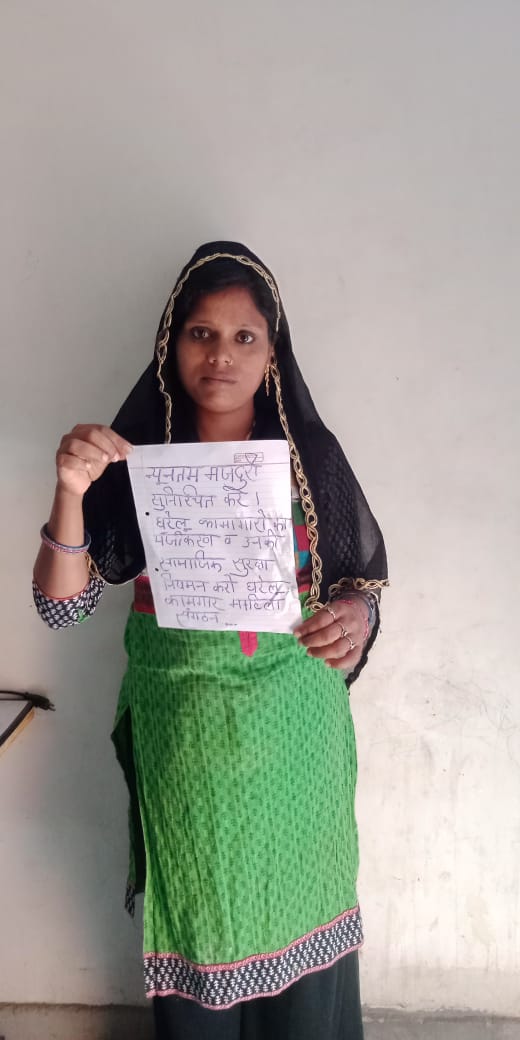 न्यूनतम मजदूरी
सुनिश्चित करें ।
घरेलू कामगारों का
पंजीकरण व उनकी
सामाजिक सुरक्षा
नियमन करो घरेलू
कामगार महिला
संगठन ...